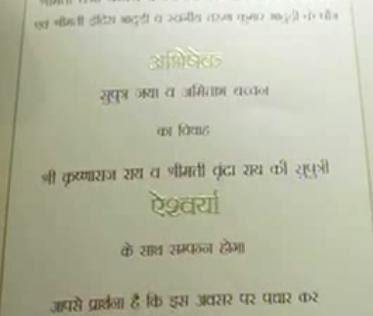 एवं श्रीमती इंदिरा भादुड़ी व स्वर्गीय तरुण कुमार भादुड़ी के पौत्र
अभिषेक
सुपुत्र जया व अमिताभ बच्चन
का विवाह
श्री कृष्णाराज राय व श्रीमती वृंदा राय की सुपुत्री
ऐश्वर्या
के साथ सम्पन्न होगा
आपसे प्रार्थना है कि इस अवसर पर पधार कर